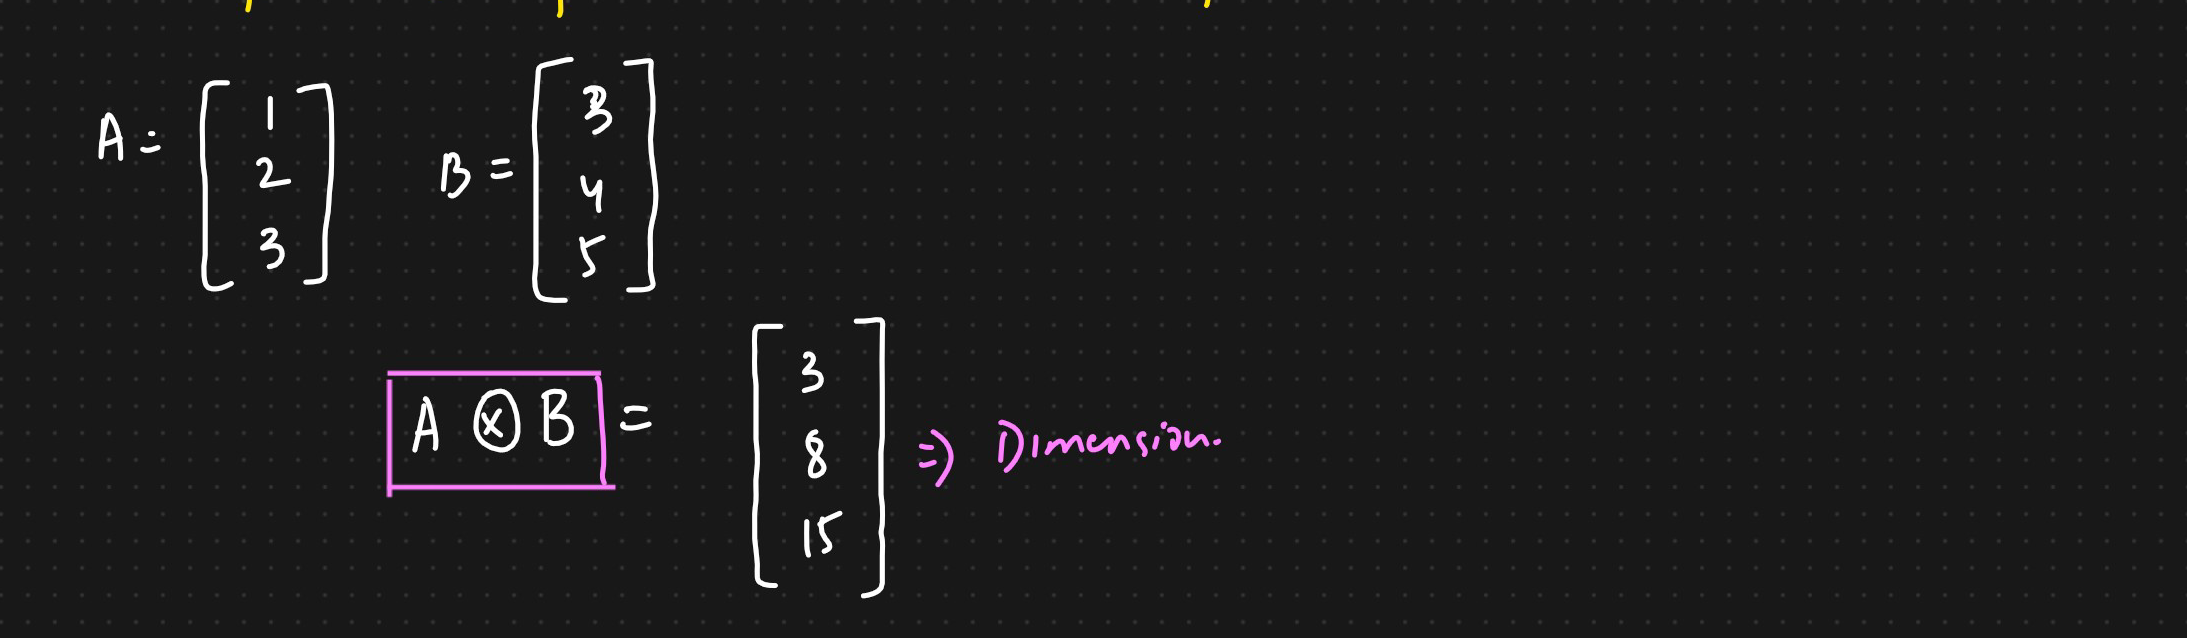 A = [1 2 3] B = [3 4 5]
A ⊗ B = [3 8 15] ⇒ Dimension.